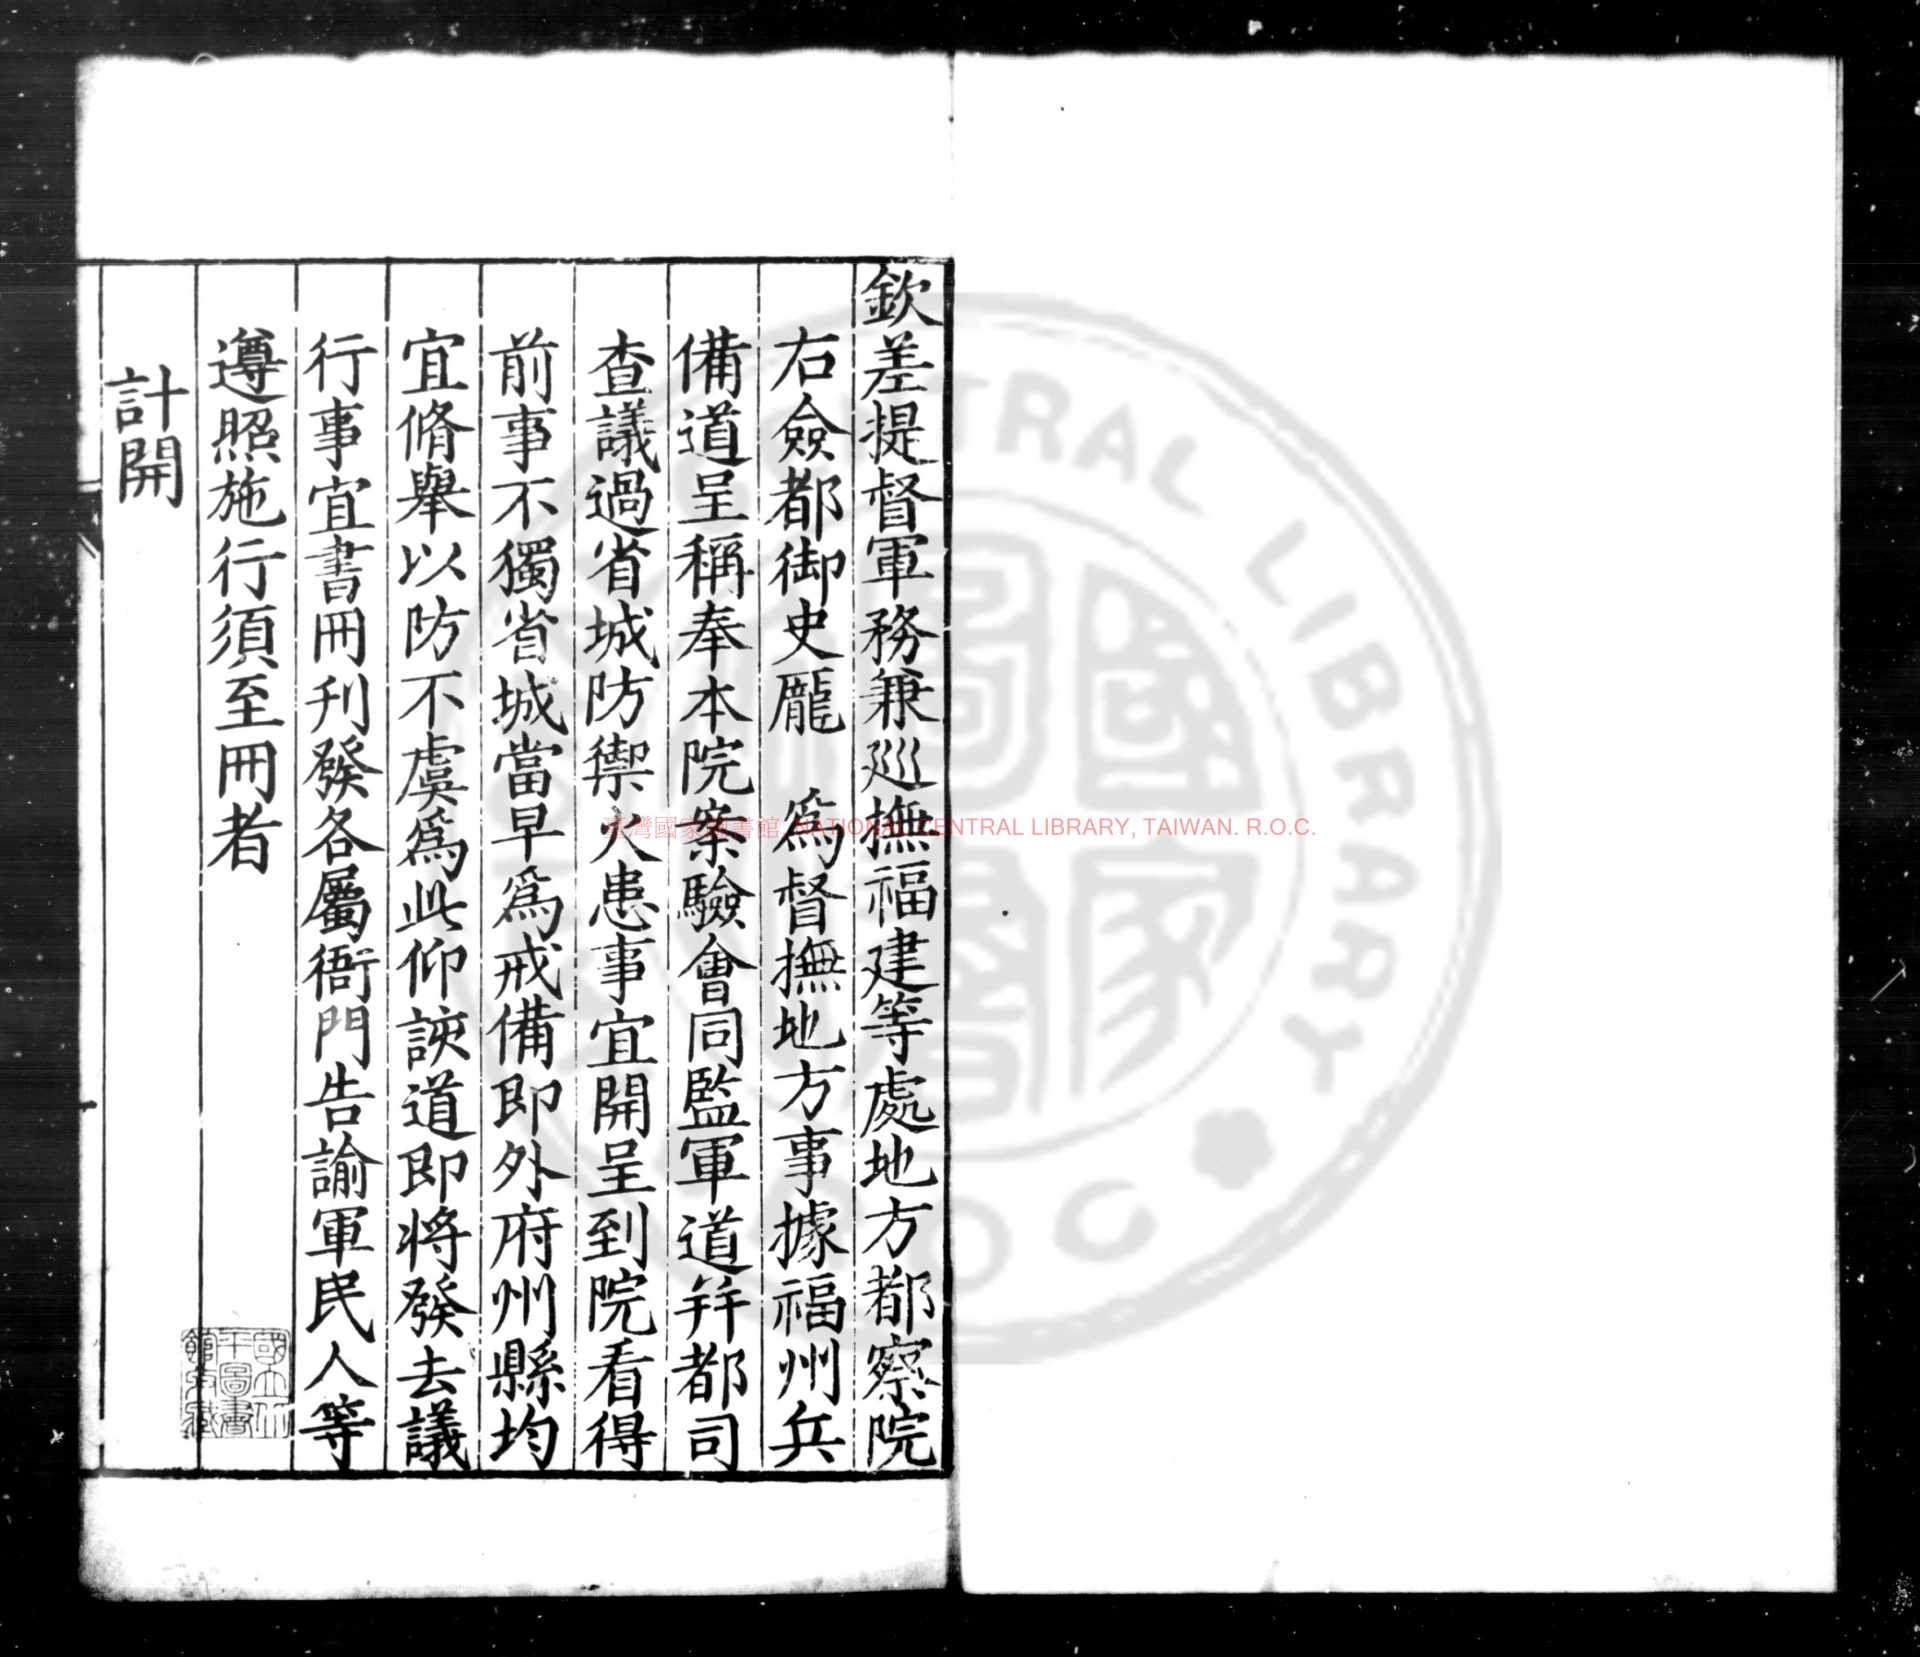 欽差提督軍務兼巡撫福建等處地方都察院
右僉都御史龐　為督撫地方事據福州兵
備道呈稱奉本院案驗會同監軍道并都司
查議過省城防禦火患事宜開呈到院看得
前事不獨省城當早為戒備即外府州縣均
宜脩舉以防不虞為此仰該道即將發去議
行事宜書冊刋發各屬衙門告諭軍民人等
遵照施行須至冊者
計開
臺灣國家圖書館, NATIONAL CENTRAL LIBRARY, TAIWAN. R.O.C.